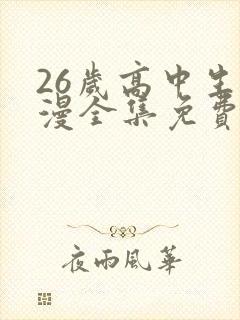 26歲高中生
漫全集免費
夜雨風華